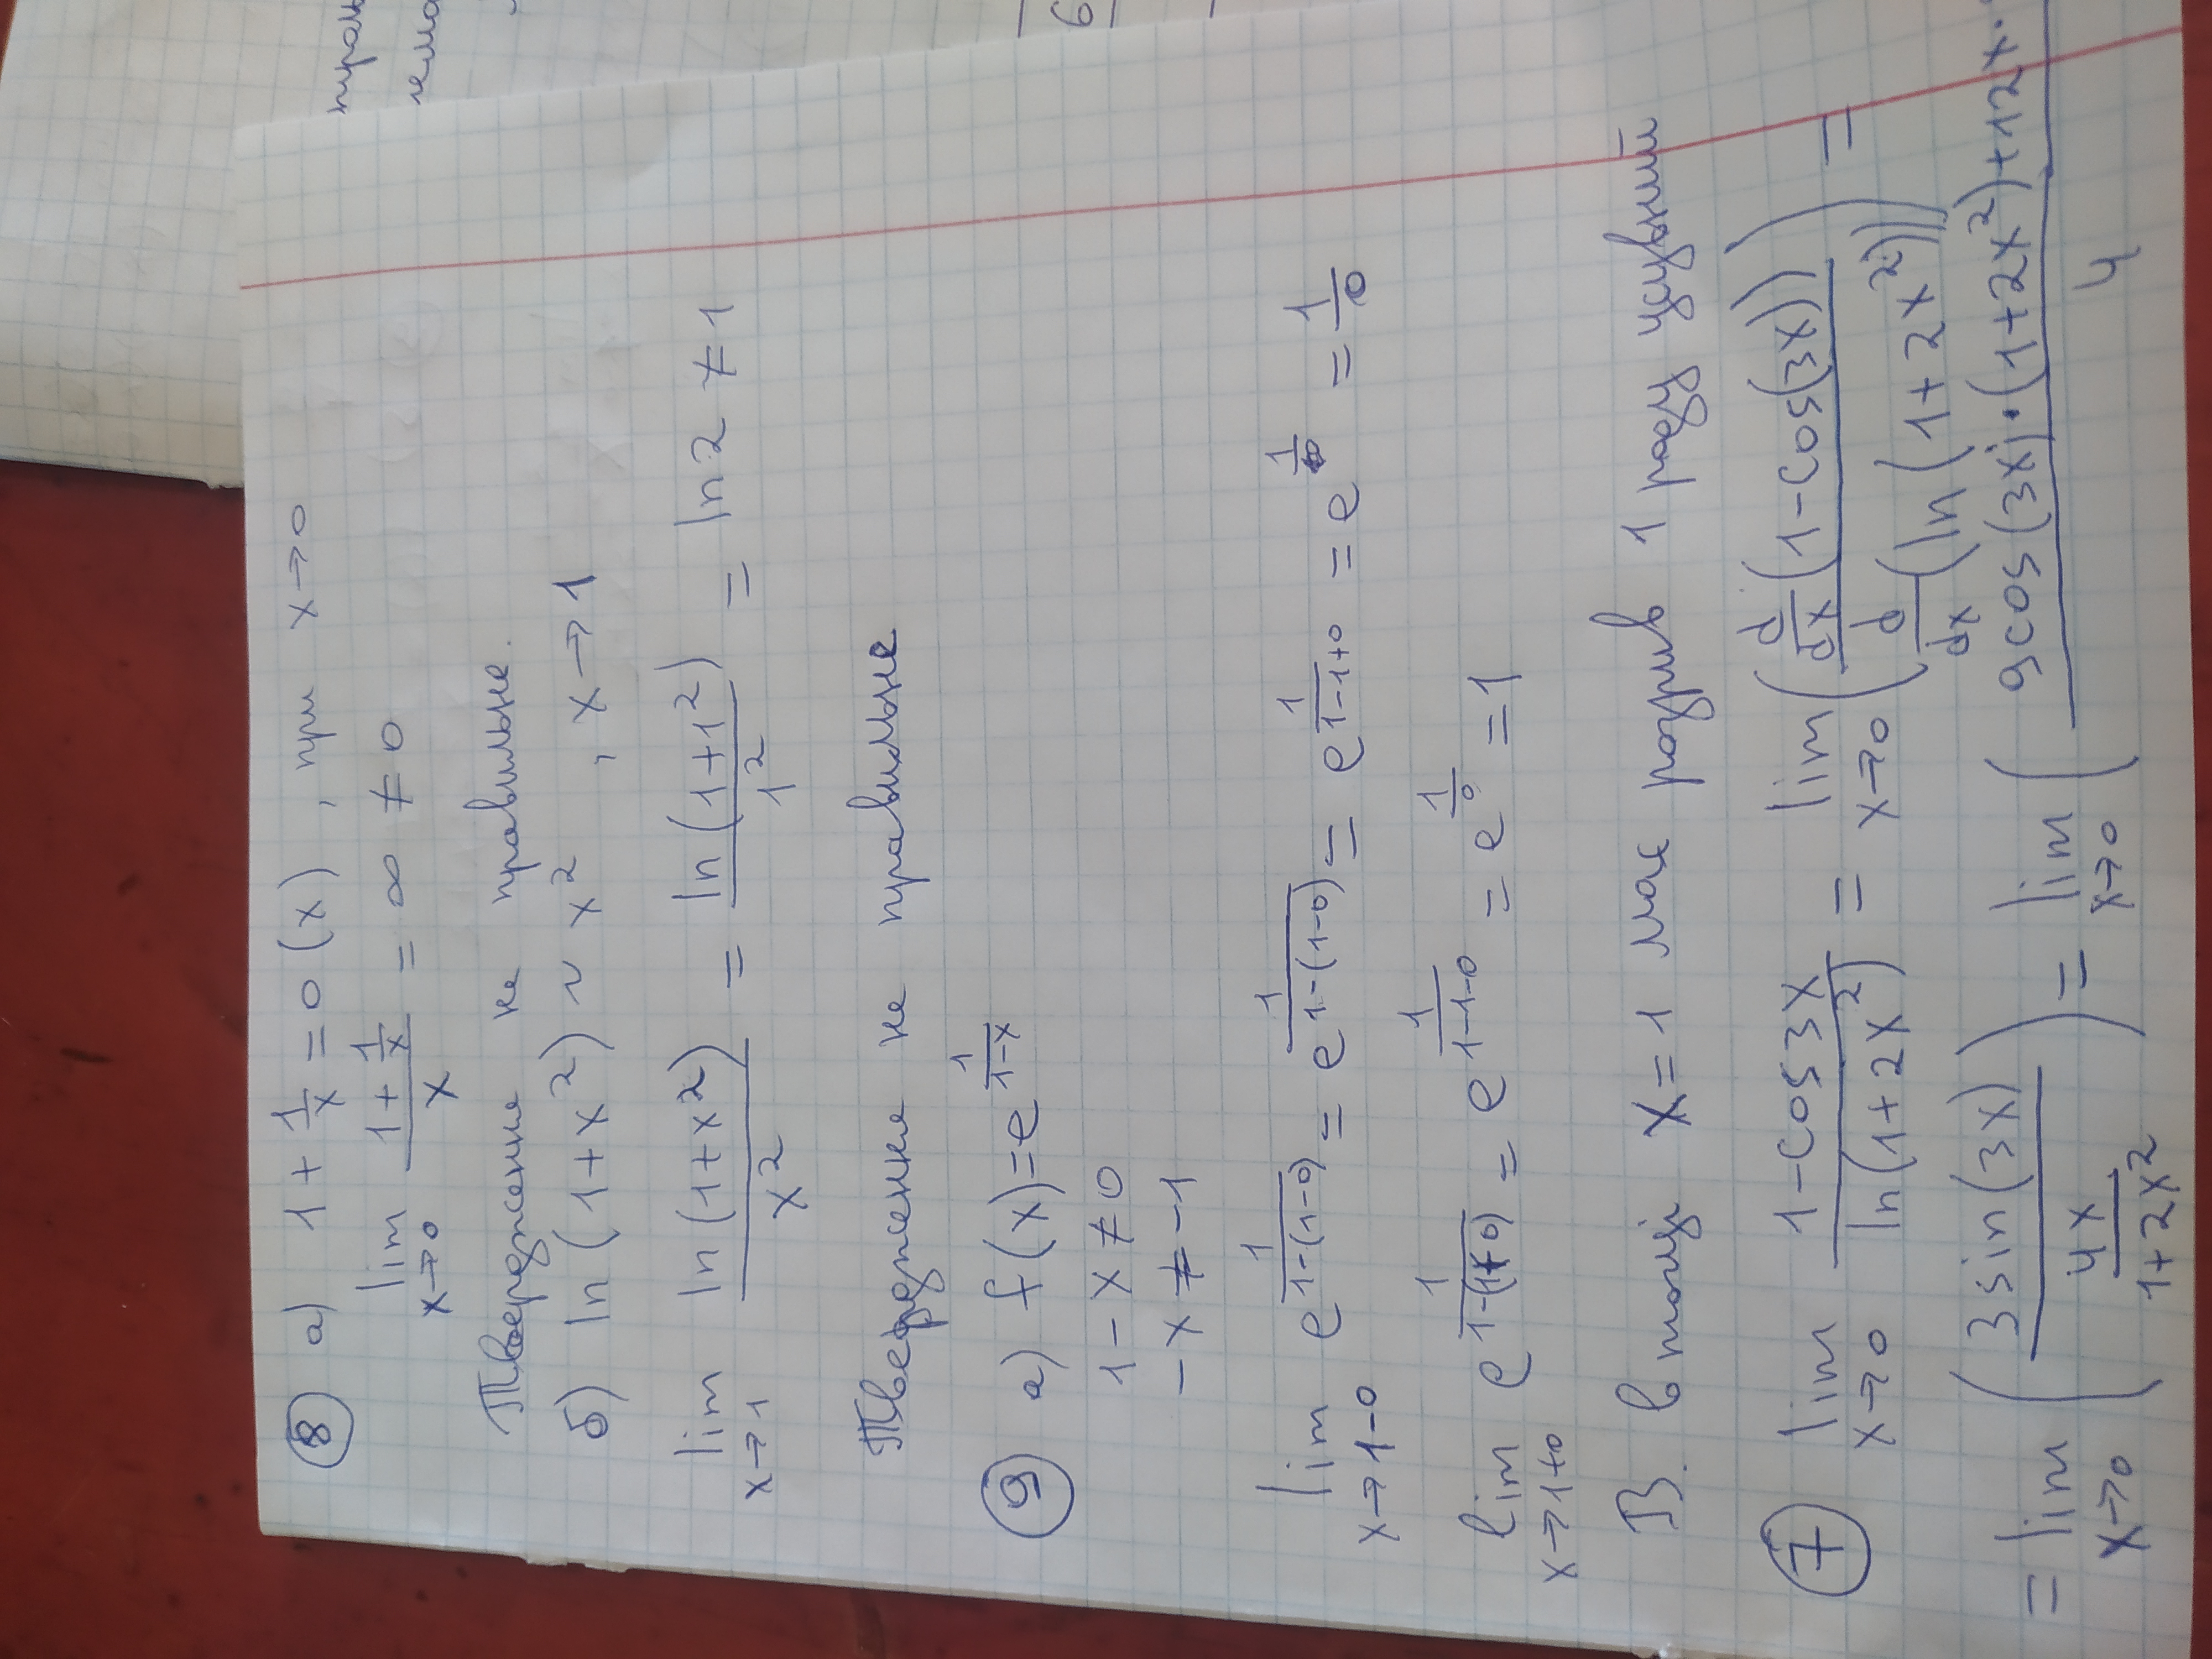 8 а) 1 + 1/x = o(x), при x→0
lim x→0 (1 + 1/x)/x = ∞ ≠ 0
Твердження не правильне.
б) ln(1+x²) ~ x², x→1
lim x→1 ln(1+x²)/x² = ln(1+1²)/1² = ln2 ≠ 1
Твердження не правильне
9 а) f(x)=e^(1/(1-x))
1-x≠0
-x≠-1
lim x→1-0 e^(1/(1-(1-0))) = e^(1/(1-(1-0))) = e^(1/(1-1+0)) = e^(1/0) = 1/0
lim x→1+0 e^(1/(1-(1+0))) = e^(1/(1-1-0)) = e^(1/0) = 1
В. в точці x=1 має розрив 1 роду усувний
7 lim x→0 (1-cos3x)/(ln(1+2x²)) = lim x→0 (d/dx(1-cos(3x))/(d/dx(ln(1+2x²)))) =
= lim x→0 (3sin(3x)/(4x/(1+2x²))) = lim x→0 (9cos(3x)·(1+2x²)+12x·/4
6